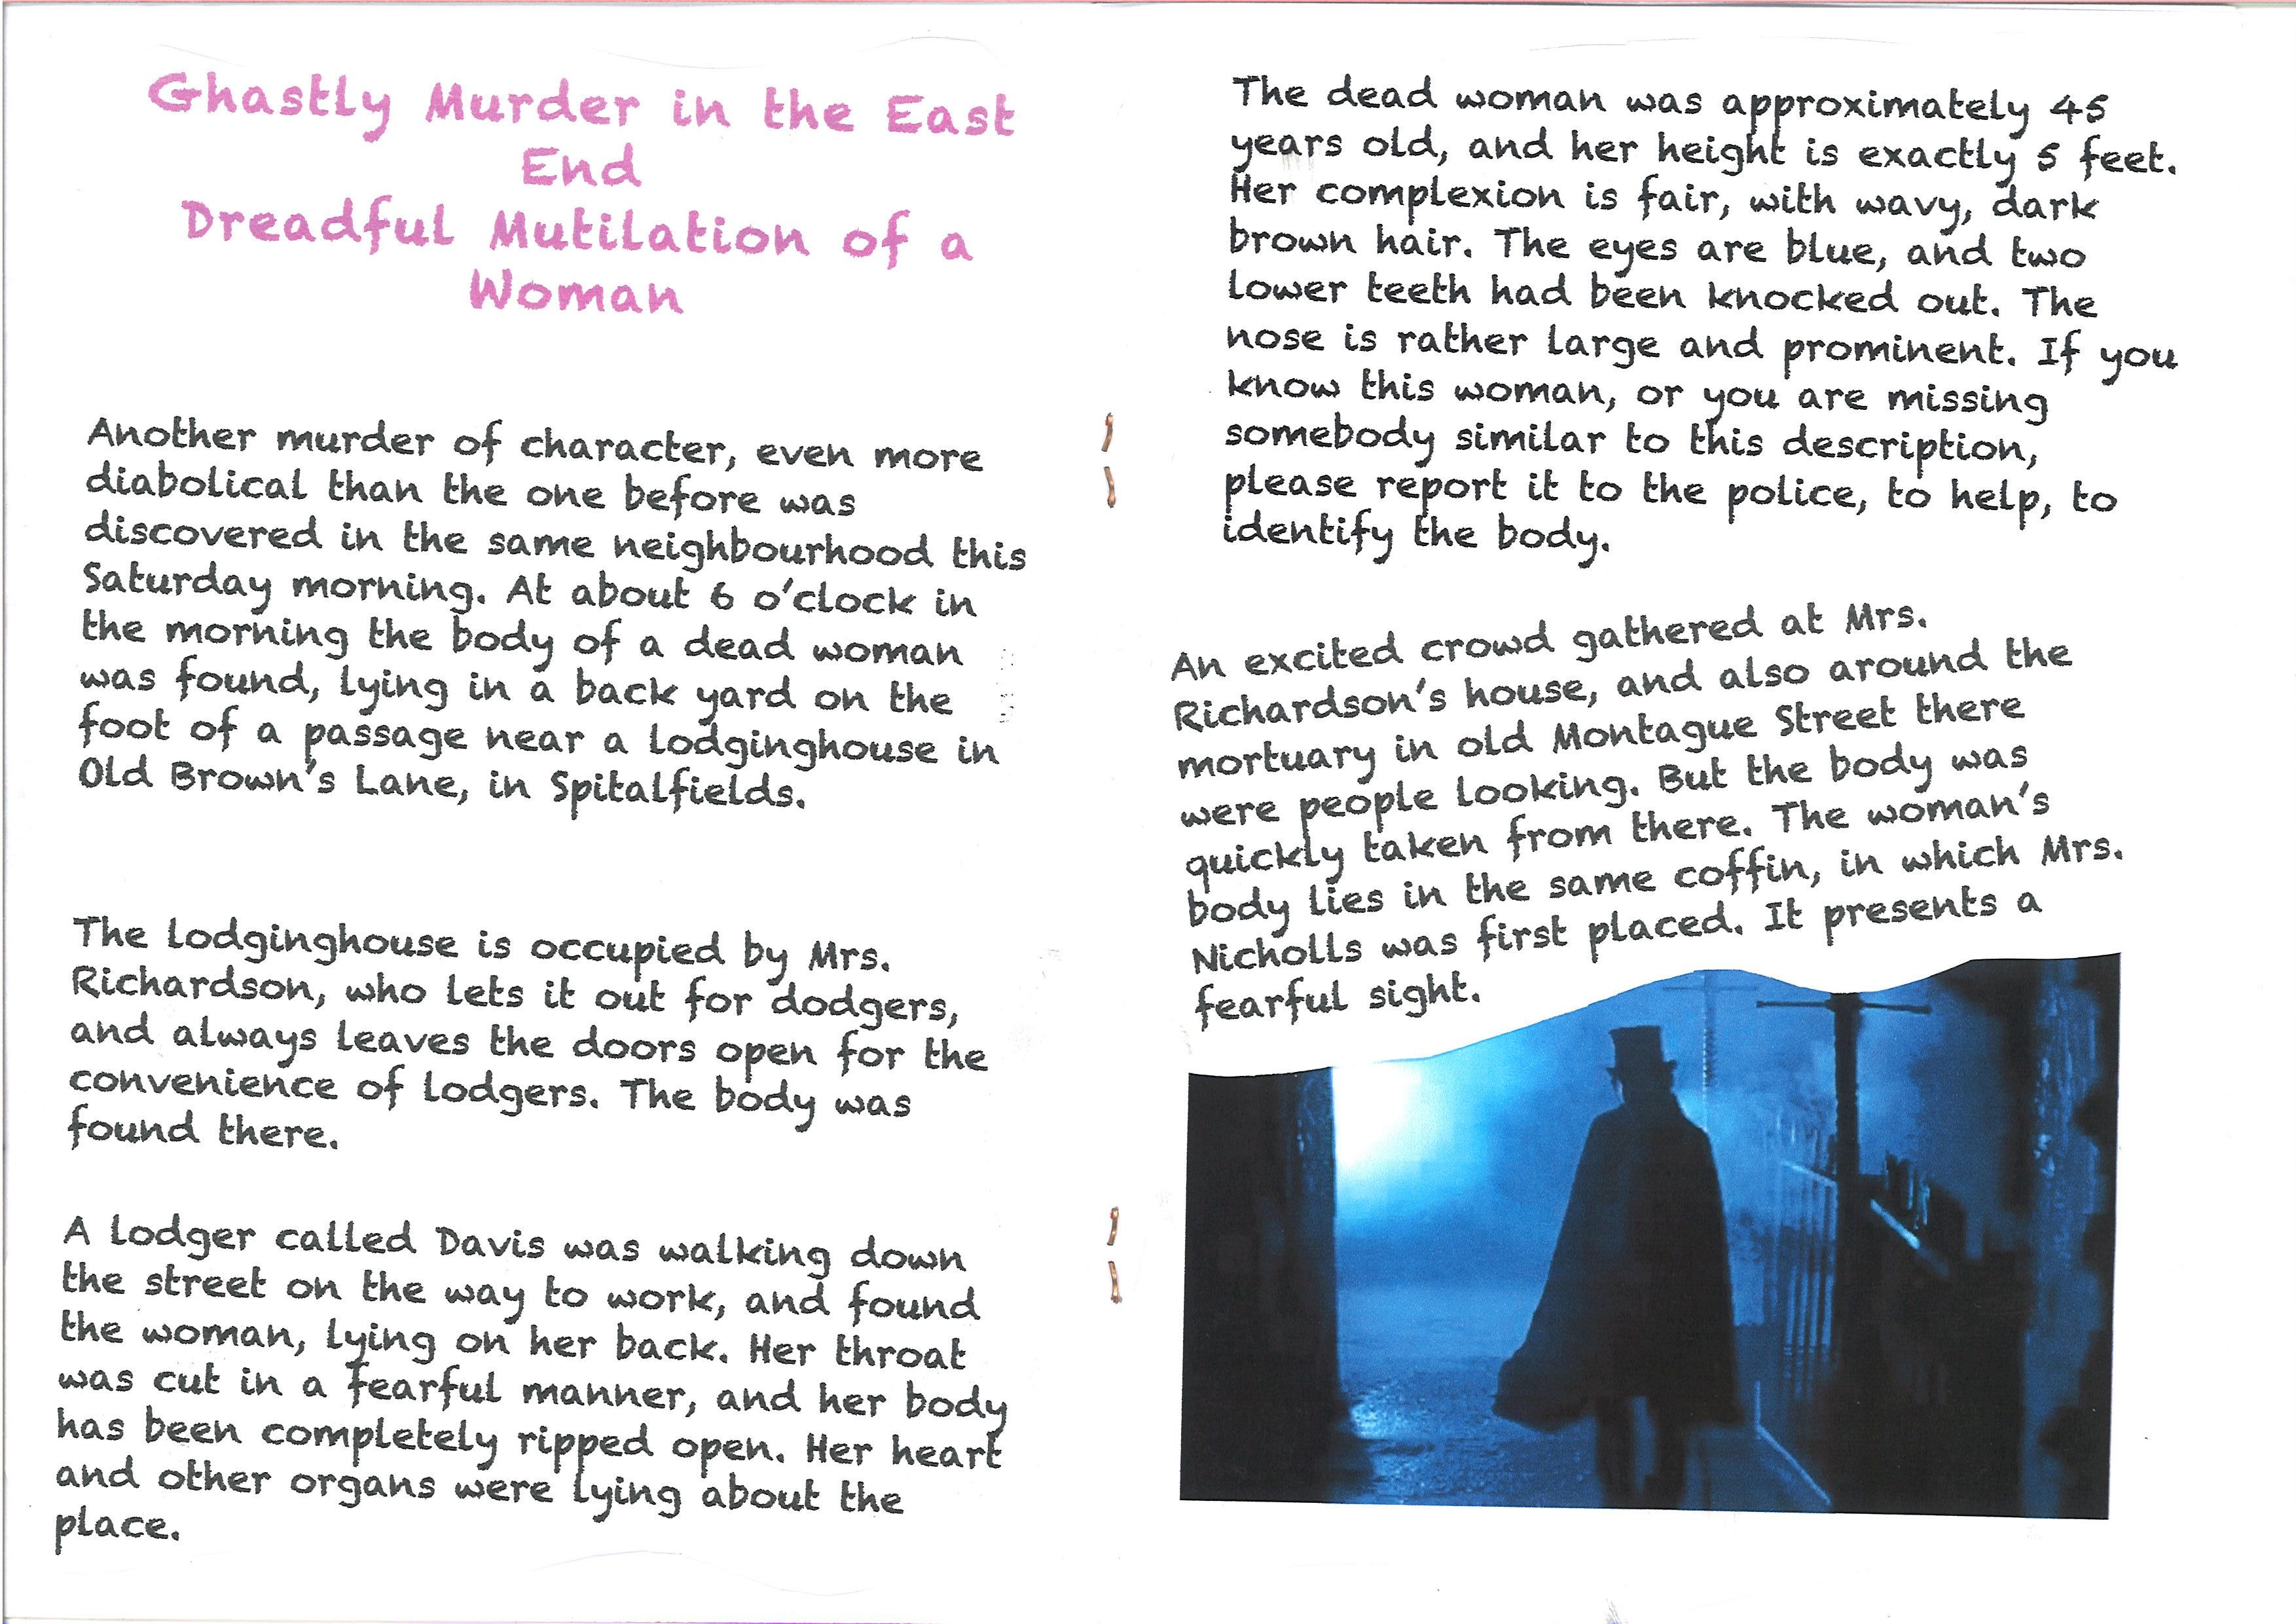 Ghastly Murder in the East
End
Dreadful Mutilation of a
Woman
Another murder of character, even more
diabolical than the one before was
discovered in the same neighbourhood this
Saturday morning. At about 6 o'clock in
the morning the body of a dead woman
was found, lying in a back yard on the
foot of a passage near a lodginghouse in
Old Brown's Lane, in Spitalfields.
The lodginghouse is occupied by Mrs.
Richardson, who lets it out for dodgers,
and always leaves the doors open for the
convenience of lodgers. The body was
found there.
A lodger called Davis was walking down
the street on the way to work, and found
the woman, lying on her back. Her throat
was cut in a fearful manner, and her body
has been completely ripped open. Her heart
and other organs were lying about the
place.
The dead woman was approximately 45
years old, and her height is exactly 5 feet.
Her complexion is fair, with wavy, dark
brown hair. The eyes are blue, and two
lower teeth had been knocked out. The
nose is rather large and prominent. If you
know this woman, or you are missing
somebody similar to this description,
please report it to the police, to help, to
identify the body.
An excited crowd gathered at Mrs.
Richardson's house, and also around the
mortuary in old Montague Street there
were people looking. But the body was
quickly taken from there. The woman's
body lies in the same coffin, in which Mrs.
Nicholls was first placed. It presents a
fearful sight.